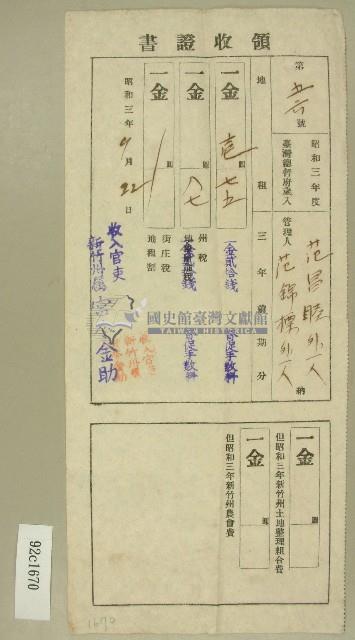 領收證書
第 號
昭和三年度
臺灣總督府歲入
管理人
范昌睦外一人
范錦標外一人
納
地租
三年前期分
一金 圓
壱 七五
金貳拾錢
督促手數料
一金 圓
八七
州稅
督促手數料
一金 圓
街庄稅
地租割
昭和三年9月22日
收入官吏
新竹州屬
金助
國史館臺灣文獻館
TAIWAN HISTORICA
一金 圓
但昭和三年新竹州土地整理組合費
一金 圓
但昭和三年新竹州農會費
92c1670
1670